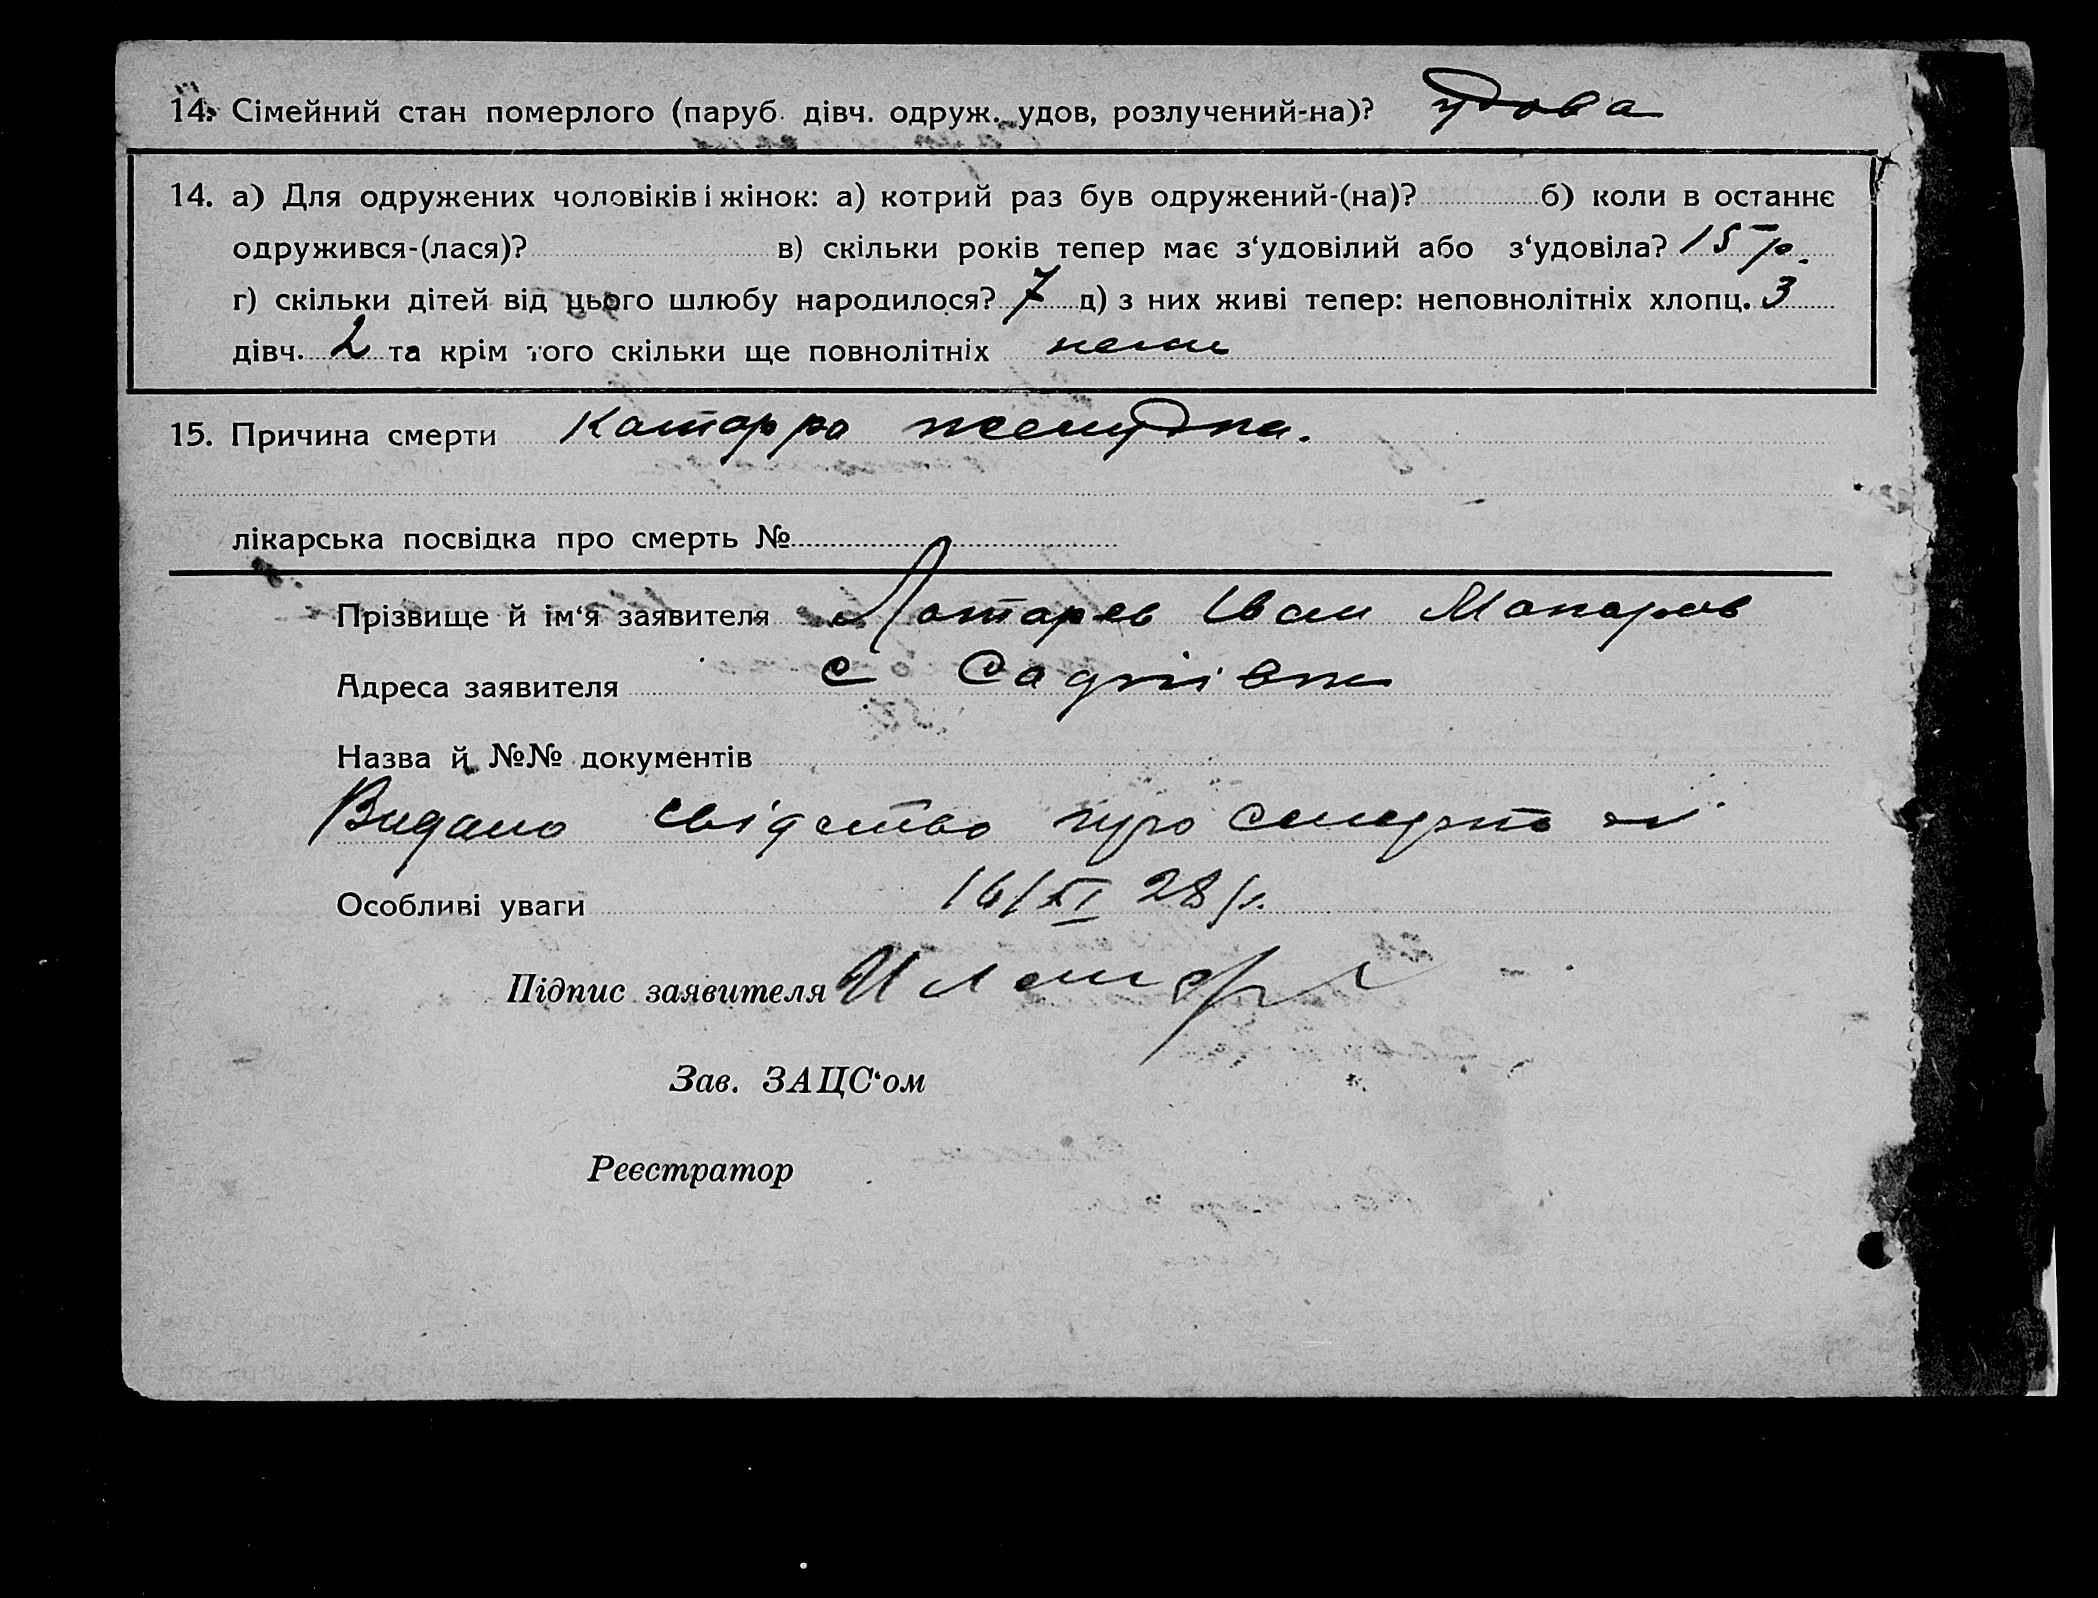 14. Сімейний стан померлого (паруб. дівч. одруж. удов, розлучений-на)? удова
14. а) Для одружених чоловіків і жінок: а) котрий раз був одружений-(на)? б) коли в останнє
одружився-(лася)? в) скільки років тепер має з‘удовілий або з‘удовіла? 15 р.
г) скільки дітей від цього шлюбу народилося? 7 д) з них живі тепер: неповнолітніх хлопц. 3
дівч. 2 та крім того скільки ще повнолітніх нема
15. Причина смерти Катарра желудка.
лікарська посвідка про смерть №
Прізвище й ім‘я заявителя Лотарев Іван Макаров
Адреса заявителя с Садківки
Назва й №№ документів
Видано свідетво про смерть
Особливі уваги 16/XI 28 р.
Підпис заявителя И
Зав. ЗАЦС‘ом
Реєстратор